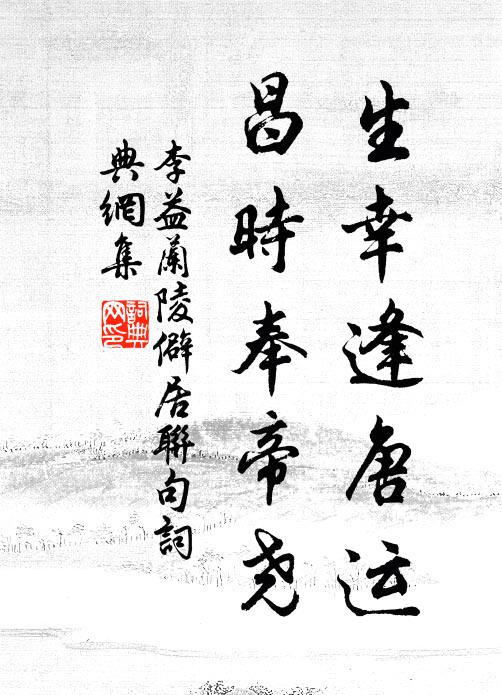 生幸逢唐运
昌時奉帝尧
李益蘭陵僻居聯句詞
典網集
詞典网印